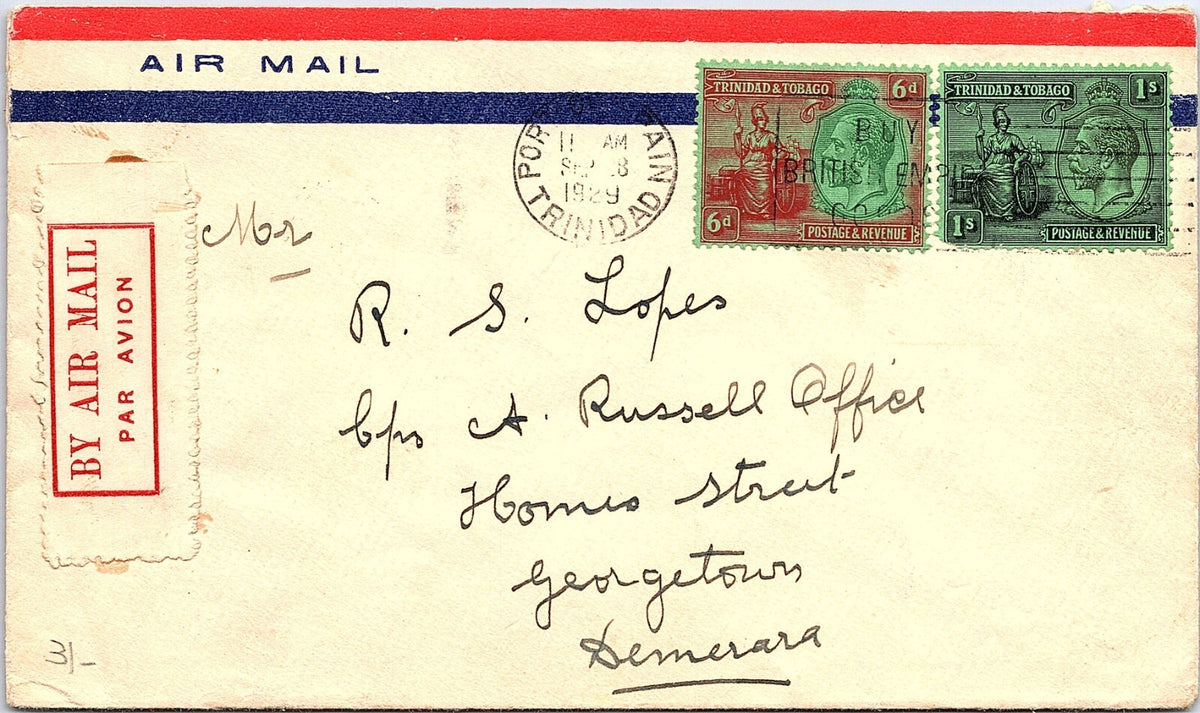 AIR MAIL
TRINIDAD & TOBAGO 6d
6d POSTAGE & REVENUE
TRINIDAD & TOBAGO 1s
1s POSTAGE & REVENUE
11 AM
1929
TRINIDAD
BUY
BRITISH EMPIRE
BY AIR MAIL
PAR AVION
Mr
R. S. Lopes
A. Russell Office
Homes Street
Georgetown
Demerara
3/-